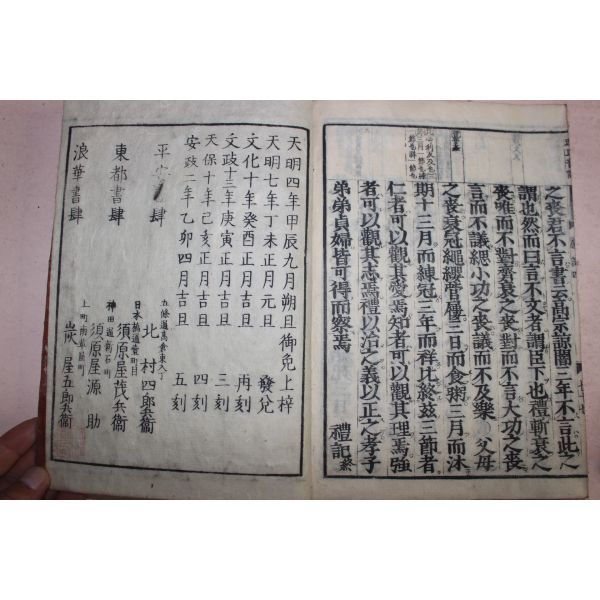 之喪君不言書云高宗諒闇三年不言此之
謂也然而曰言不文者謂臣下也禮斬衰之
喪唯而不對齊衰之喪對而不言大功之喪
言而不議緦小功之喪議而不及樂父母
之喪衰冠繩纓菅屨三日而食粥三月而沐
期十三月而練冠三年而祥比終茲三節者
仁者可以觀其愛焉知者可以觀其理焉強
者可以觀其志焉禮以治之義以正之孝子
弟弟貞婦皆可得而察焉
禮記終
天明四年甲辰九月朔且御免上梓
天明七年丁未正月元且 發兌
文化十年癸酉正月吉且 再刻
文政十三年庚寅正月吉且 三刻
天保十年己亥正月吉且 四刻
安政二年乙卯四月吉且 五刻
平安書肆
五條通高倉東入丁
北村四郎兵衞
東都書肆
日本橋通壹町目
須原屋茂兵衞
神田通新石町
須原屋源助
浪華書肆
炭屋五郎兵衞